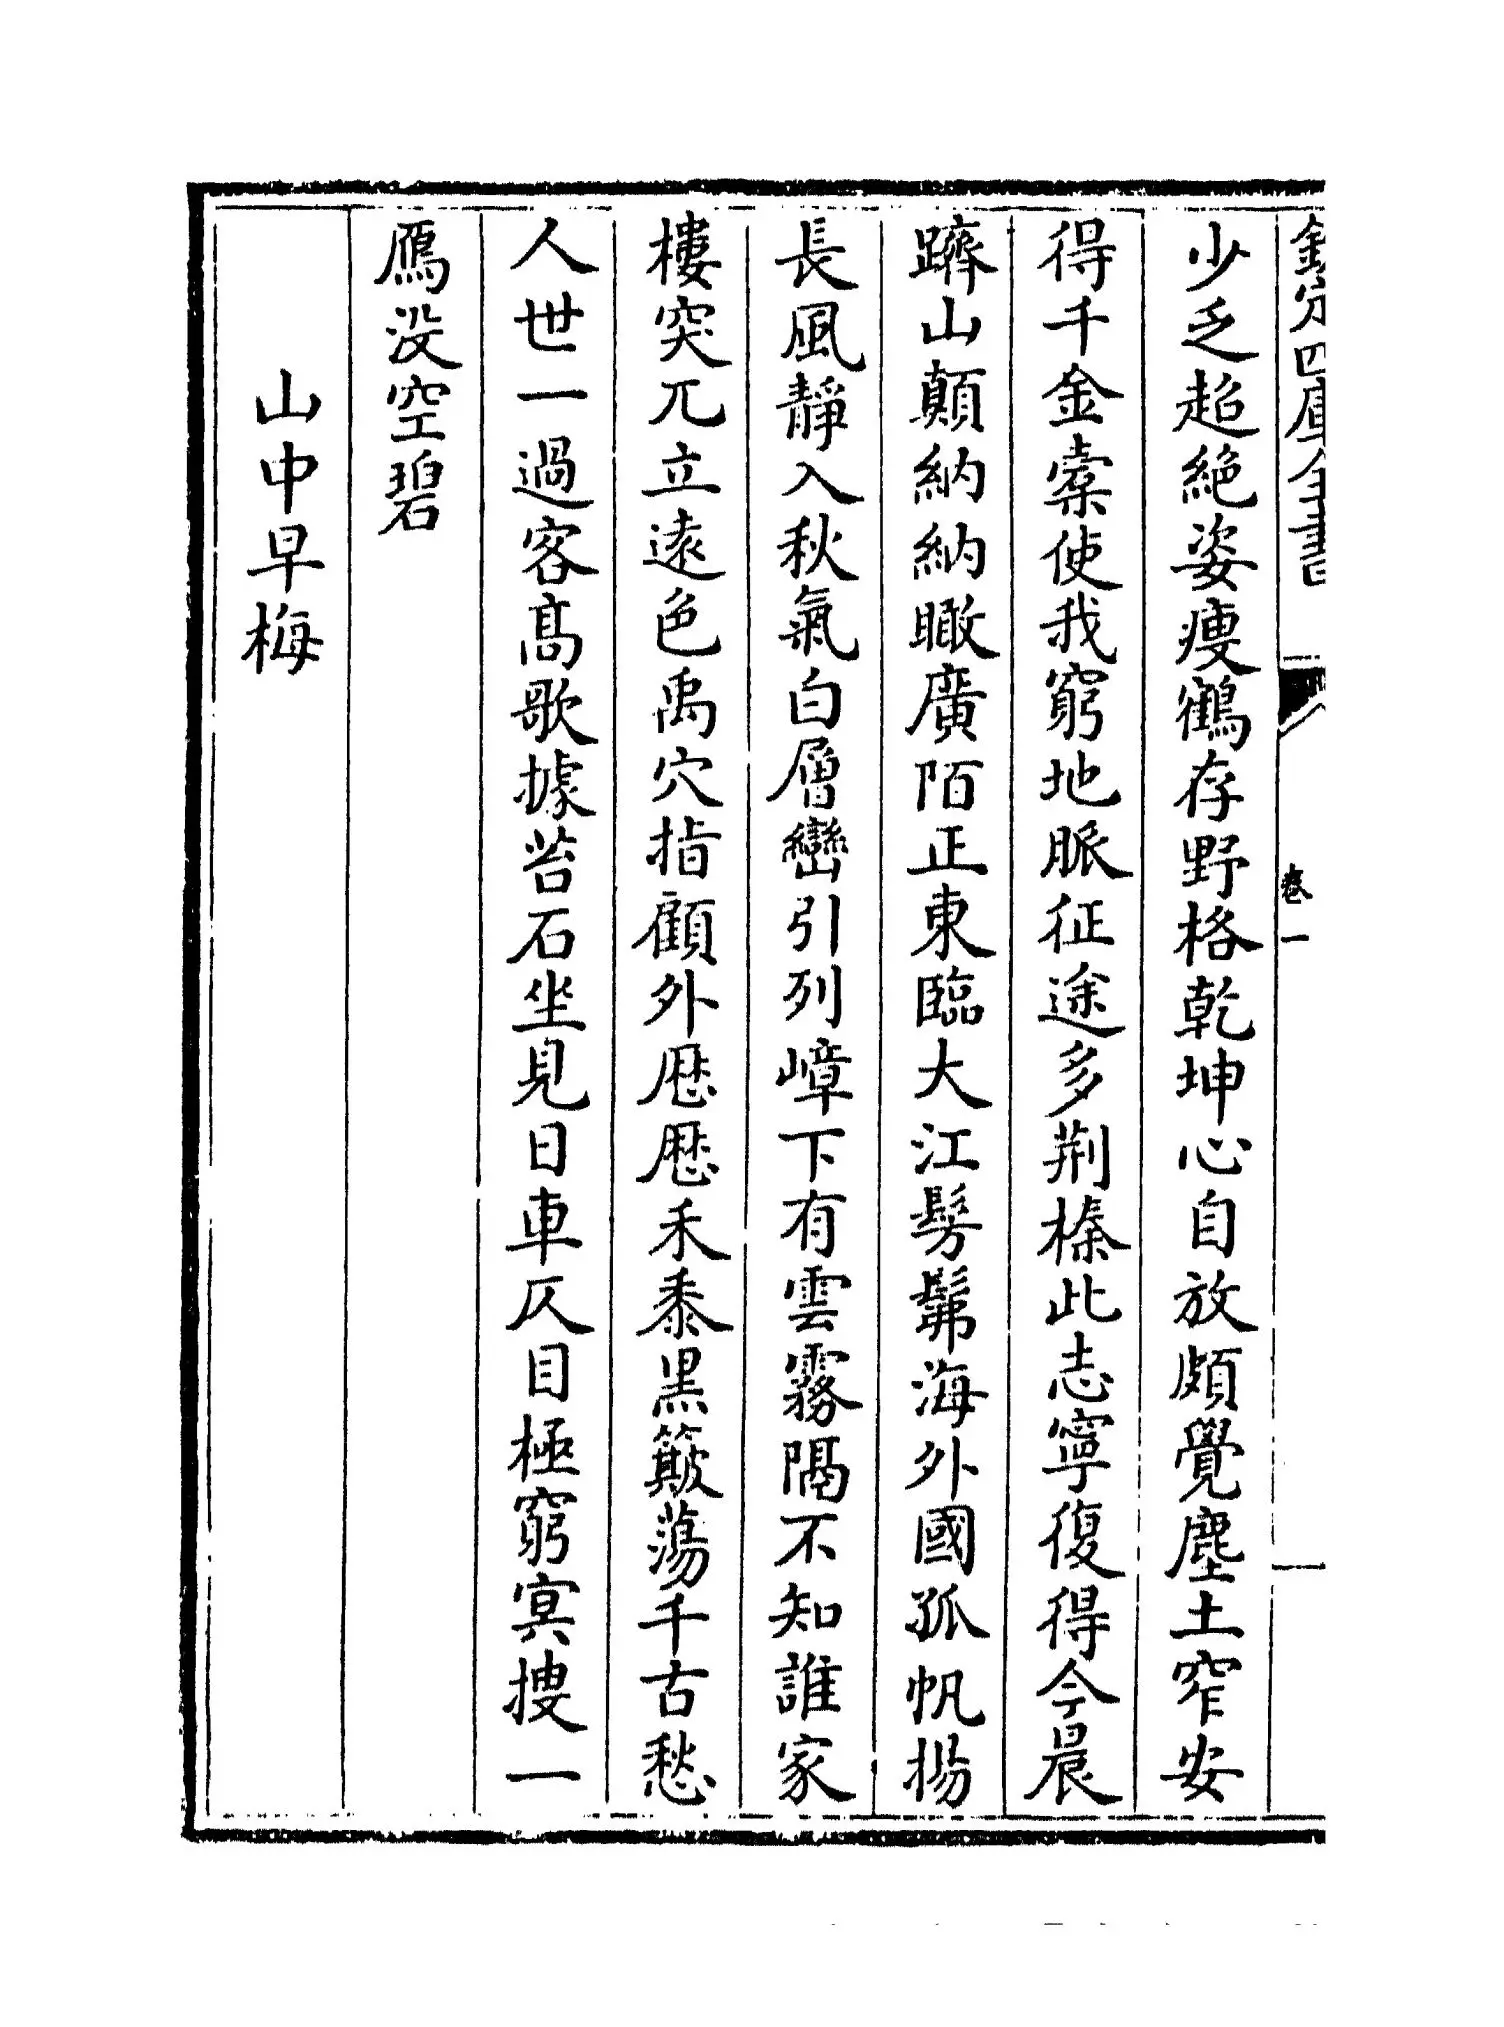 欽定四庫全書
卷一
少乏超絶姿瘦鶴存野格乾坤心自放頗覺塵土窄安
得千金槖使我窮地脈征途多荆榛此志寧復得今晨
躋山顛納納瞰廣陌正東臨大江髣髴海外國孤帆揚
長風靜入秋氣白層巒引列嶂下有雲霧隔不知誰家
樓突兀立逺色禹穴指顧外厯厯禾黍黑簸蕩千古愁
人世一過客髙歌據苔石坐見日車仄目極窮㝠搜一
鴈没空碧
山中早梅